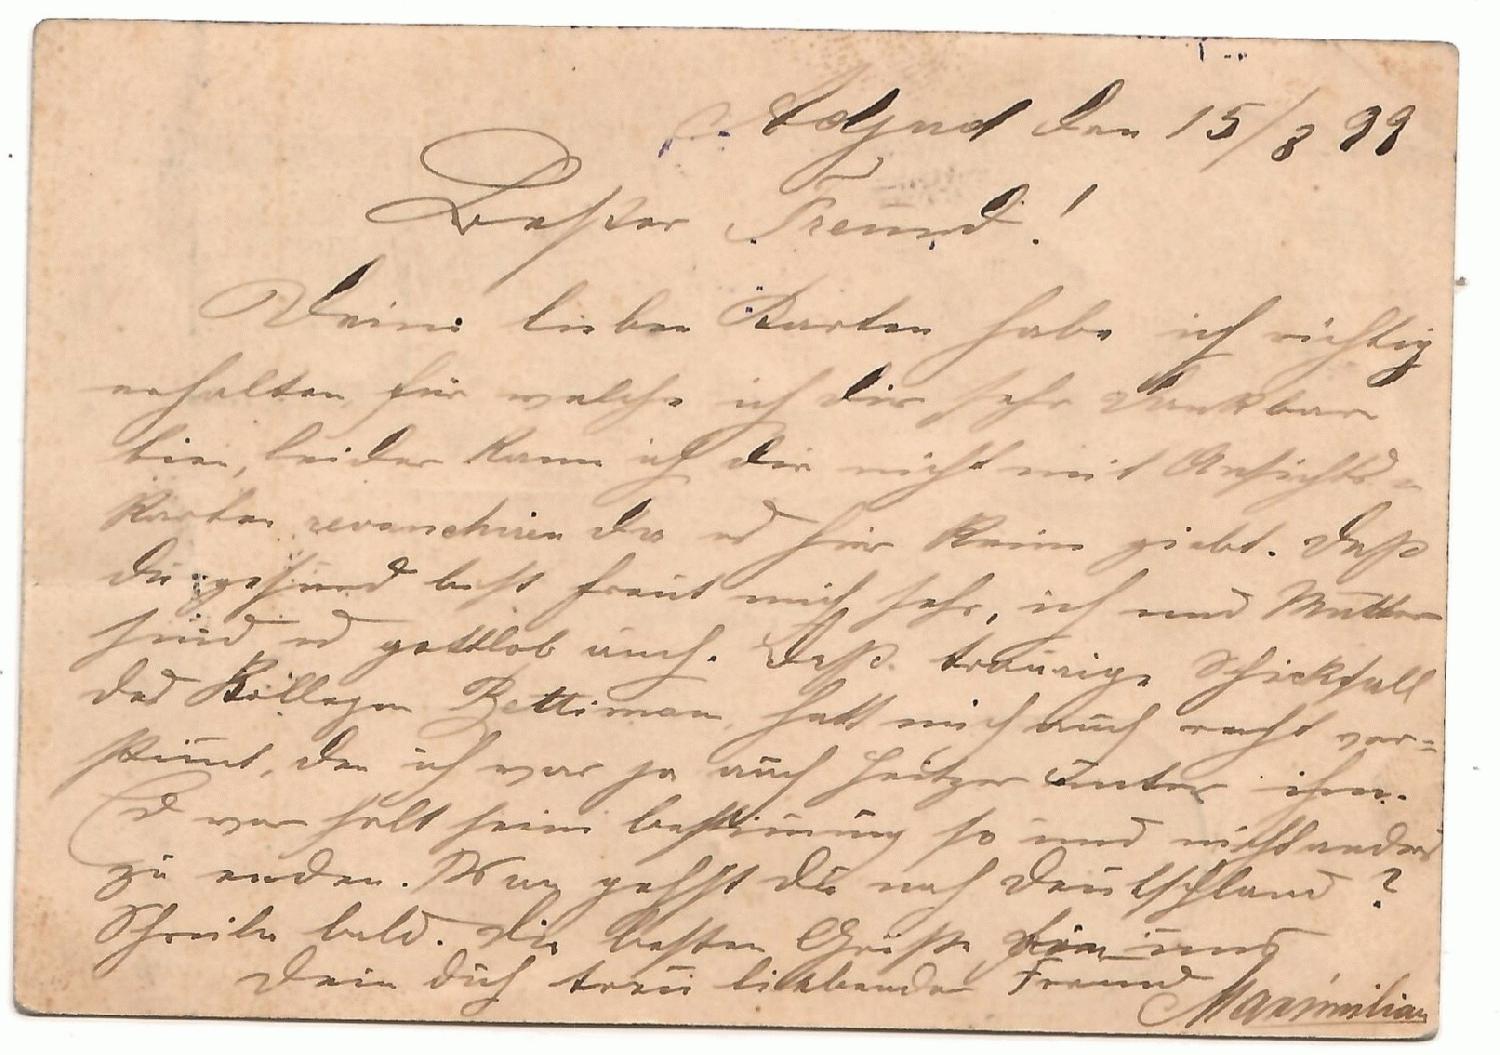 Adjud den 15/8 99
Bester Freund!
Deine lieben Karten habe ich richtig
erhalten für welche ich dir sehr dankbar
bin, leider kann ich dir nicht mit Ansichts=
karten revanchiren da es hier keine giebt. Daß
du gesund bist freut mich sehr, ich und Mutter
sind es gottlob auch. Daß traurige Schicksall
des Kollegen Bettiman hatt mich auch recht ver=
stimt, den ich war ja auch Heitzer unter ihm.
Es war halt seine bestimung so und nicht anders
zu enden. Wan gehst du nach Deutschland?
Schreibe bald. Die besten Grüße von uns
Dein dich treu liebender Freund
Maximilian